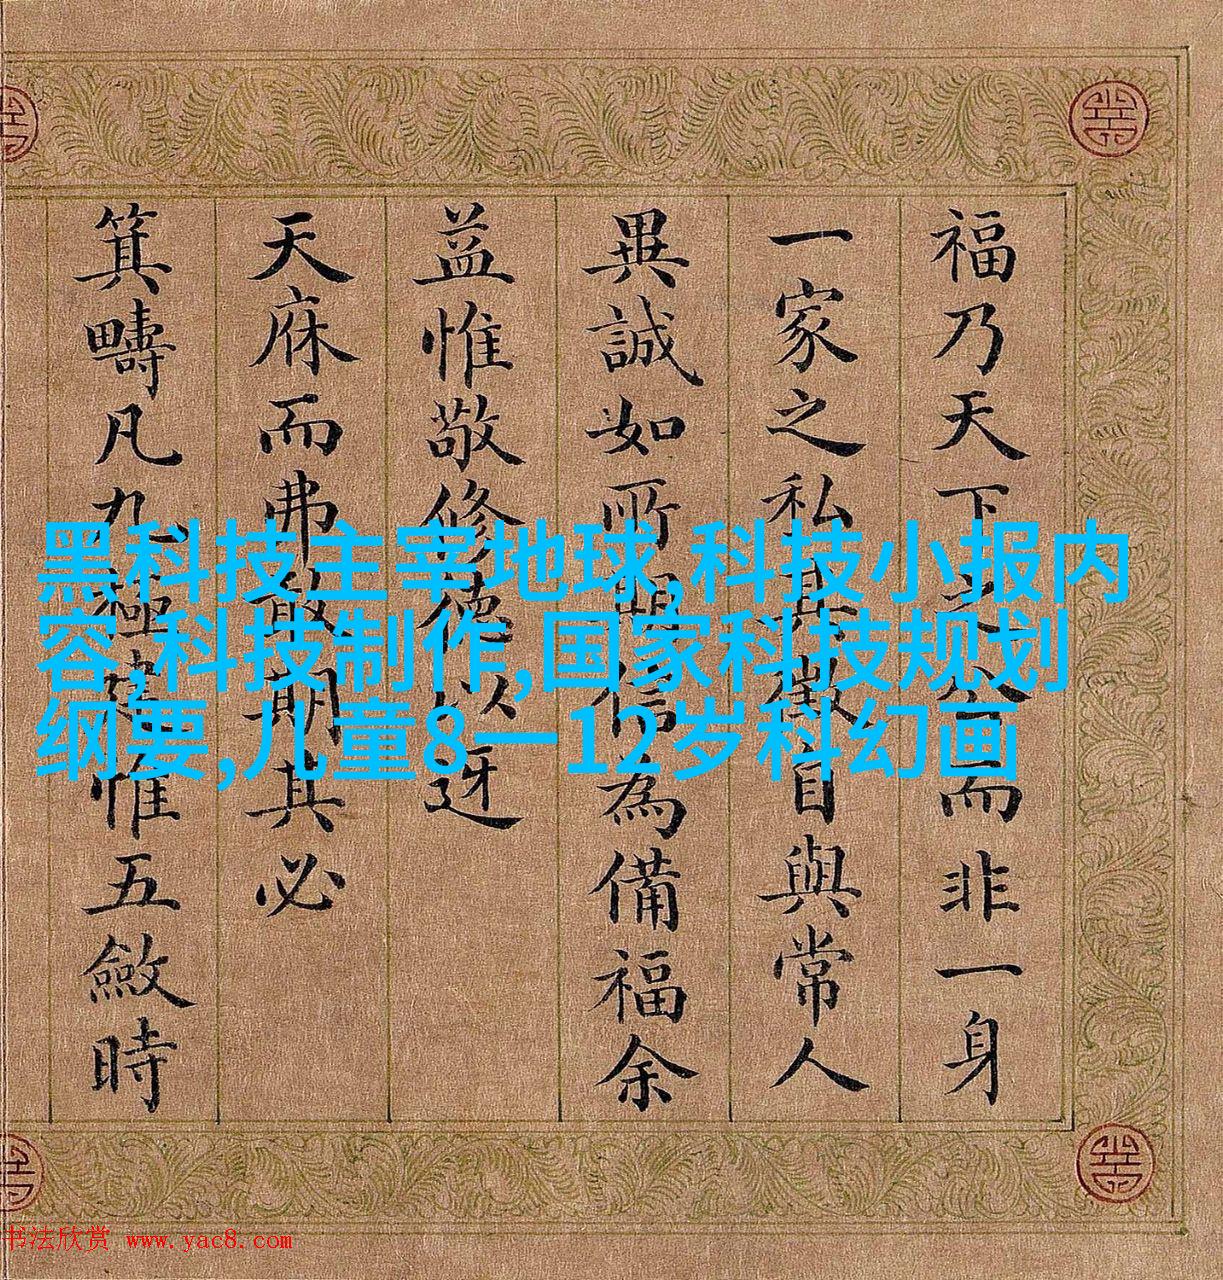 福乃天下之公而非一身
一家之私其徵自與常人
異誠如所信為備福余
益惟敬修德以迓
天庥而弗敢期其必
箕疇凡九極建惟五斂時
黑科技主宰地球,科技小报内
容,科技制作,国家科技规划
纲要,儿童8一12岁科幻画
书法欣赏 www.yac8.com